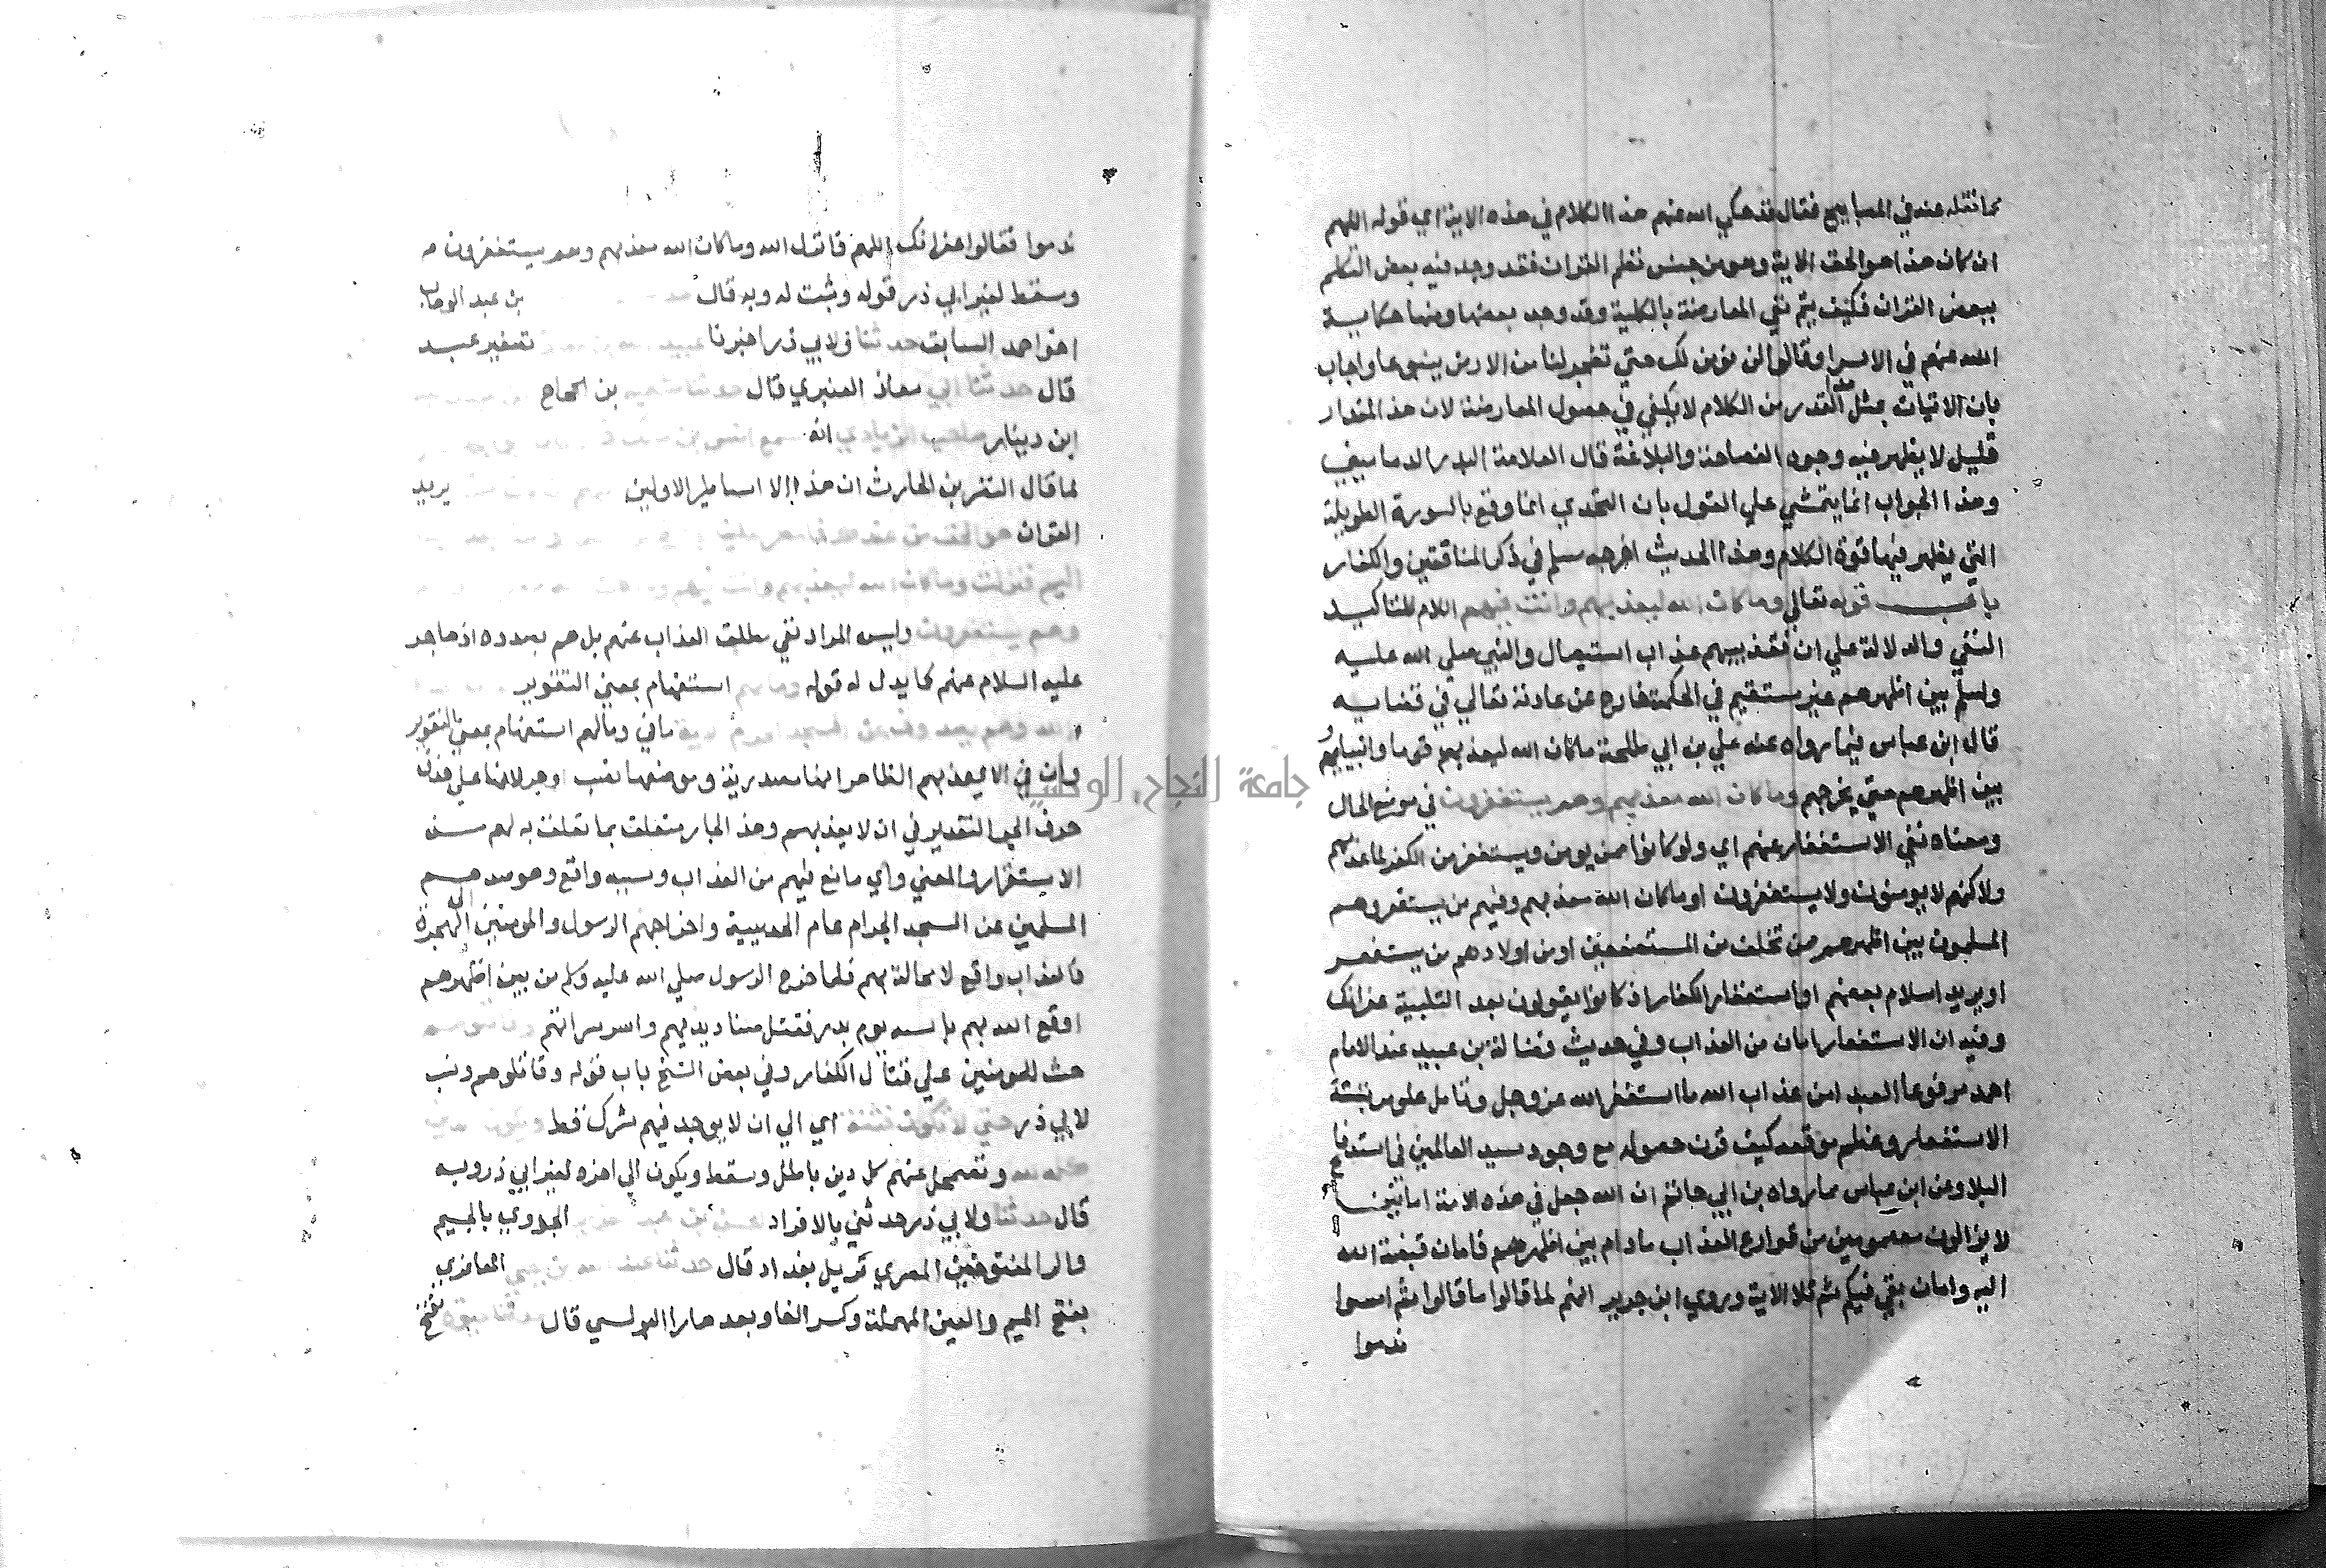 مما نقله عنه في المصابيح فقال قد حكي الله عنهم هذا الكلام في هذه الاية اي قوله اللهم
ان كان هذا هو الحق الاية وهو من جنس نظم القران فقد وجد فيه بعض التكلم
ببعض القران فكيف يتم نفي المعارضة بالكلية وقد وجد بعضها ومنها حكاية
الله عنهم في الاسرا وقالوا لن نومن لك حتي تفجر لنا من الارض ينبوعا واجاب
بان الاتيان بمثل هذا القدر من الكلام لا يكفي في حصول المعارضة لان هذا المقدار
قليل لا يظهر فيه وجوه الفصاحة والبلاغة قال العلامة البدر الدماميني
وهذا الجواب انما يتمشي علي القول بان التحدي انما وقع بالسورة الطويلة
التي يظهر فيها قوة الكلام وهذا الحديث اخرجه مسلم في ذكر المنافقين والكفار
باب قوله تعالي وما كان الله ليعذبهم وانت فيهم اللام للتاكيد
النفي والدلالة علي ان تعذيبهم عذاب استيصال والنبي صلي الله عليه
وسلم بين اظهرهم غير مستقيم في الحكمة خارج عن عادته تعالي في قضايه
قال ابن عباس فيما رواه عنه علي بن ابي طلحة ما كان الله ليعذب قوما وانبياوهم
بين اظهرهم حتي يخرجهم وما كان الله معذبهم وهم يستغفرون في موضع الحال
ومعناه نفي الاستغفار عنهم اي ولو كانوا ممن يومن ويستغفر من الكفر لما عذبهم
ولاكنهم لا يومنون ولا يستغفرون او ما كان الله معذبهم وفيهم من يستغفر وهم
المسلمون بين اظهرهم من تخلف من المستضعفين او من اولادهم من يستغفر
او يريد اسلام بعضهم او استغفار الكفار اذ كانوا يقولون بعد التلبية غفرانك
وفيه ان الاستغفار امان من العذاب وفي حديث فضالة بن عبيد عند الامام
احمد مرفوعا العبد امن عذاب الله ما استغفر الله عز وجل وتامل علو مرتبته
الاستغفار وعظم موقعه كيف قرن حصوله مع وجود سيد العالمين في استدفاع
البلا وعن ابن عباس مما رواه بن ابي حاتم ان الله جعل في هذه الامة امانين
لا يزالون معصومين من قوارع العذاب ما دام بين اظهرهم فامان قبضه الله
اليه وامان بقي فيكم ثم تلا الاية وروي ابن جرير انهم لما قالوا ما قالوا ثم امسوا
ندموا
ندموا فقالوا غفرانك اللهم فانزل الله وما كان الله معذبهم وهم يستغفرون
وسقط لغير ابي ذر قوله وثبت له وبه قال بن عبد الوهاب
اخو احمد السابق حدثنا ولابي ذر اخبرنا عبيد تصغير عبد
قال حدثنا ابي معاذ العنبري قال حدثنا شعبة بن الحجاج
ابن دينار صاحب الزيادي انه سمع انس بن
لما قال النضر بن الحارث ان هذا الا اساطير الاولين يريد
القران هو الحق من عندك فامطر علينا
اليم فنزلت وما كان الله ليعذبهم وانت فيهم
وهم يستغفرون وليس المراد نفي مطلق العذاب عنهم بل هم بصدده اذا هاجر
عليه السلام عنهم كما يدل له قوله وما لهم استفهام بمعني التقرير
الله وهم يصدون عن المسجد الحرام ما في وما لهم استفهام بمعني التقرير
وان في الا يعذبهم الظاهر انها مصدرية وموضعها نصب او جر لانها علي حذف
حرف الجر التقدير في ان لا يعذبهم وهذا الجار متعلق بما تعلق به لهم من
الاستقرار والمعني واي مانع فيهم من العذاب وسببه واقع وهو صدهم
المسلمين عن المسجد الحرام عام الحديبية واخراجهم الرسول والمومنين الي الهجرة
فالعذاب واقع لا محالة بهم فلما خرج الرسول صلي الله عليه وسلم من بين اظهرهم
اوقع الله بهم باسه يوم بدر فقتل صناديدهم واسر سراتهم وقاتلوهم
حث للمومنين علي قتال الكفار وفي بعض النسخ باب قوله وقاتلوهم ونسب
لابي ذر حتي لا تكون فتنة اي الي ان لا يوجد فيهم شرك قط ويكون الدين
كله لله وتضمحل عنهم كل دين باطل وسقط ويكون الي اخره لغير ابي ذر وبه
قال حدثنا ولابي ذر حدثني بالافراد الحسن بن عبد العزيز الجروي بالجيم
والرا المفتوحتين المصري نزيل بغداد قال حدثنا عبد الله بن يحيي المعافري
بفتح الميم والعين المهملة وكسر الفا وبعدها را البرلسي قال حدثنا حيوة بفتح
جامعة النجاح الوطنية